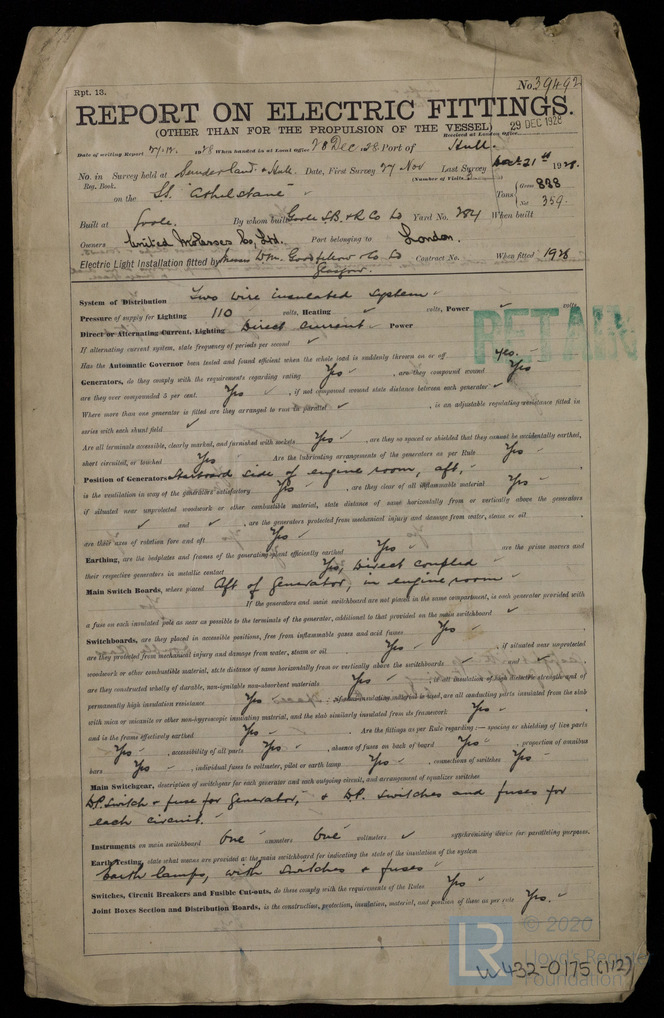 Rpt. 13.
No. 39492
REPORT ON ELECTRIC FITTINGS.
(OTHER THAN FOR THE PROPULSION OF THE VESSEL)
Received at London Office 29 DEC 1928
Date of writing Report 27.12. 1928 When handed in at Local Office 28 Dec 28 Port of Hull.
No. in Survey held at Sunderland & Hull. Date, First Survey 27 Nov Last Survey Dec 21st 1928.
Reg. Book. (Number of Visits
on the SS. "Athelstane" Tons { Gross 888
Net 359.
Built at Goole. By whom built Goole S.B. & R. Co Ld Yard No. 284 When built
Owners United Molasses Co, Ltd. Port belonging to London.
Electric Light Installation fitted by Messrs Wm. Goodfellow & Co. Ld Contract No. When fitted 1928
Glasgow.
System of Distribution Two wire insulated system
Pressure of supply for Lighting 110 volts, Heating ✓ volts, Power ✓ volts.
Direct or Alternating Current, Lighting Direct Current Power
RETAIN
If alternating current system, state frequency of periods per second ✓
Has the Automatic Governor been tested and found efficient when the whole load is suddenly thrown on or off yes.
Generators, do they comply with the requirements regarding rating Yes , are they compound wound Yes
are they over compounded 5 per cent. Yes , if not compound wound state distance between each generator ✓
Where more than one generator is fitted are they arranged to run in parallel ✓ , is an adjustable regulating resistance fitted in
series with each shunt field ✓
Are all terminals accessible, clearly marked, and furnished with sockets Yes , are they so spaced or shielded that they cannot be accidentally earthed,
short circuited, or touched Yes Are the lubricating arrangements of the generators as per Rule Yes
Position of Generators Starboard side of engine room, aft,
is the ventilation in way of the generators satisfactory Yes , are they clear of all inflammable material Yes
if situated near unprotected woodwork or other combustible material, state distance of same horizontally from or vertically above the generators
✓ and ✓ , are the generators protected from mechanical injury and damage from water, steam or oil
are their axes of rotation fore and aft Yes
Earthing, are the bedplates and frames of the generating plant efficiently earthed Yes are the prime movers and
their respective generators in metallic contact Yes, Direct coupled
Main Switch Boards, where placed Aft of generator, in engine room
If the generators and main switchboard are not placed in the same compartment, is each generator provided with
a fuse on each insulated pole as near as possible to the terminals of the generator, additional to that provided on the main switchboard ✓
Switchboards, are they placed in accessible positions, free from inflammable gases and acid fumes Yes
are they protected from mechanical injury and damage from water, steam or oil Yes , if situated near unprotected
woodwork or other combustible material, state distance of same horizontally from or vertically above the switchboards ✓ and ✓
are they constructed wholly of durable, non-ignitable non-absorbent materials Yes , is all insulation of high dielectric strength and of
permanently high insulation resistance Yes , if semi-insulating material is used, are all conducting parts insulated from the slab
with mica or micanite or other non-hygroscopic insulating material, and the slab similarly insulated from its framework Yes
and is the frame effectively earthed Yes . Are the fittings as per Rule regarding :— spacing or shielding of live parts
Yes , accessibility of all parts Yes , absence of fuses on back of board Yes , proportion of omnibus
bars Yes , individual fuses to voltmeter, pilot or earth lamp Yes , connections of switches Yes
Main Switchgear, description of switchgear for each generator and each outgoing circuit, and arrangement of equalizer switches
D.P. Switch & fuse for generator, & D.P. switches and fuses for
each circuit.
Instruments on main switchboard One ammeters One voltmeters ✓ synchronising device for paralleling purposes.
Earth Testing, state what means are provided at the main switchboard for indicating the state of the insulation of the system
Earth lamps, with switches & fuses
Switches, Circuit Breakers and Fusible Cut-outs, do these comply with the requirements of the Rules Yes
Joint Boxes Section and Distribution Boards, is the construction, protection, insulation, material, and position of these as per rule Yes.
© 2020
Lloyd's Register
Foundation
LR
W432-0175 (1/2)